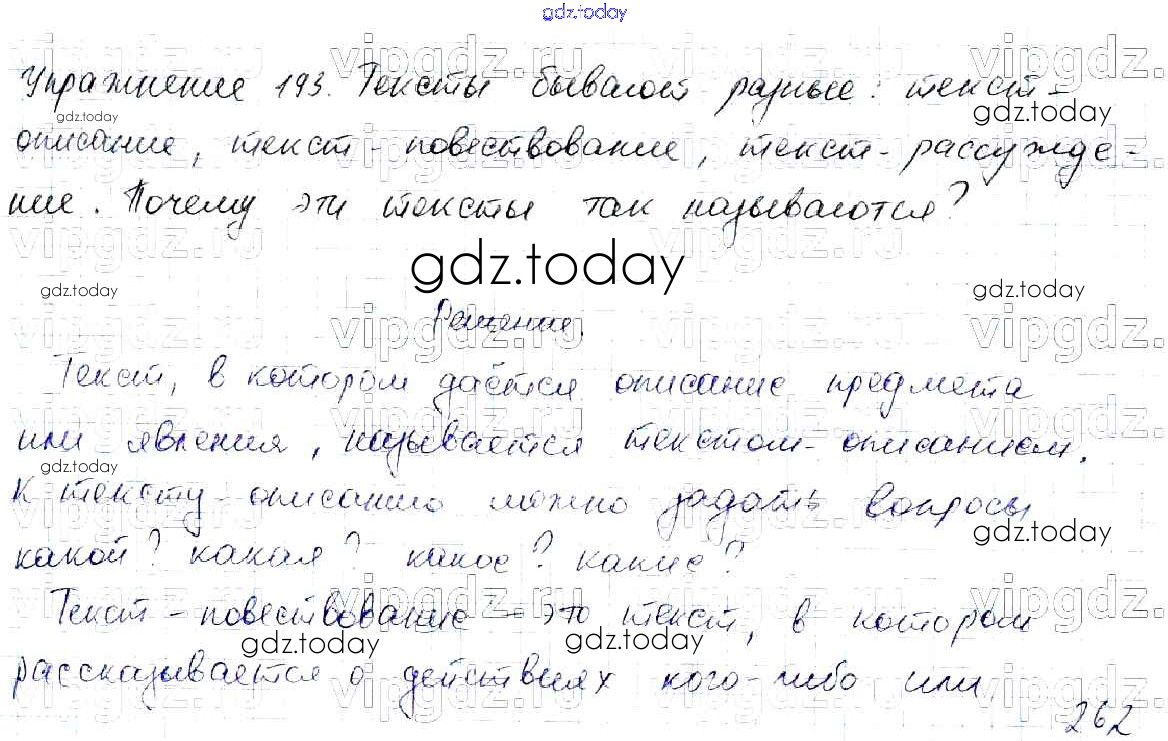 gdz.today
Упражнение 193. Тексты бывают разные: текст-
описание, текст-повествование, текст-рассужде-
ние. Почему эти тексты так называются?
gdz.today
Решение.
Текст, в котором даётся описание предмета
или явления, называется текстом-описанием.
К тексту-описанию можно задать вопросы
какой? какая? какое? какие?
Текст-повествование - это текст, в котором
рассказывается о действиях кого-либо или
262